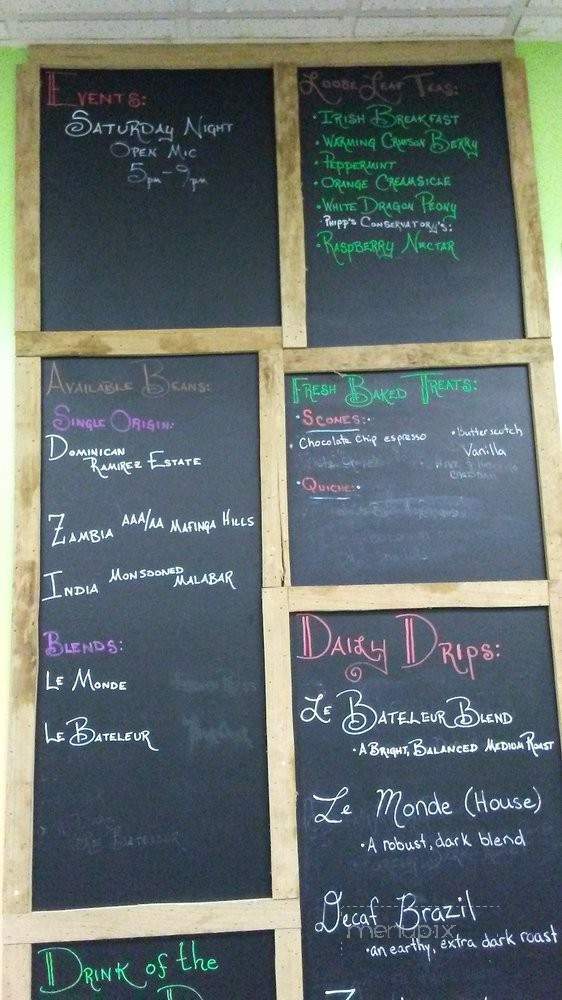 Events:
Saturday Night
Open Mic
5pm-9pm
Loose Leaf Teas:
• Irish Breakfast
• Warming Crimson Berry
• Peppermint
• Orange Creamsicle
• White Dragon Peony
Phipp's Conservatory's:
• Raspberry Nectar
Available Beans:
Single Origin:
Dominican
Ramirez Estate
Zambia AAA/AA Mafinga Hills
India Monsooned
Malabar
Blends:
Le Monde
Le Bateleur
Fresh Baked Treats:
• Scones:
• Chocolate Chip espresso
• Butterscotch
Vanilla
• Quiche:
Daily Drips:
Le Bateleur Blend
• A Bright, Balanced Medium Roast
Le Monde (House)
• A robust, dark blend
Decaf Brazil
menupix
• an earthy, extra dark roast
Drink of the